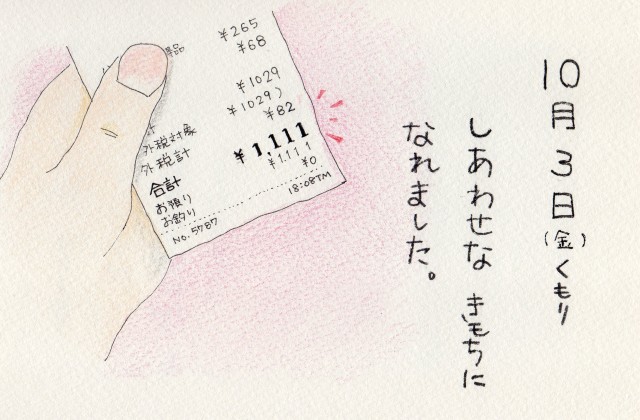 10月3日(金)くもり
しあわせな きもちに
なれました。
品
¥265
¥68
¥1029
¥1029)
外税対象
¥82
外税計
合計 ¥1,111
お預り ¥1111
お釣り ¥0
18:08TM
No.5787